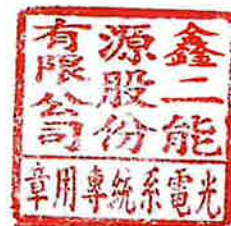 鑫二能
源股份
有限公司
光電系統專用章